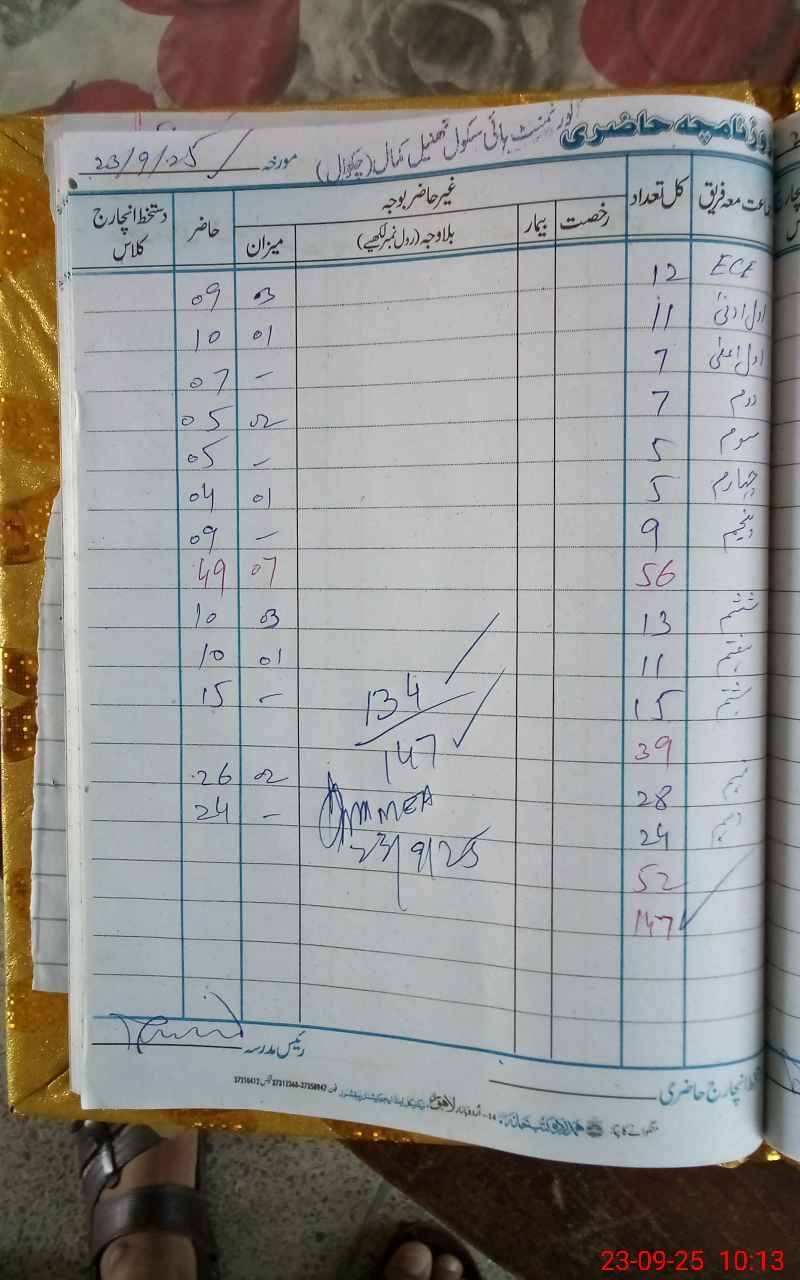 روزنامچہ حاضری گورنمنٹ ہائی سکول تھنیل کمال (چکوال) مورخہ 23/9/25
جماعت معہ فریق کل تعداد غیر حاضر بوجہ حاضر دستخط انچارج کلاس
رخصت بیمار بلاوجہ (رول نمبر لکھیے) میزان
ECE 12 03 09
اول ادنیٰ 11 01 10
اول اعلیٰ 7 - 07
دوم 7 02 05
سوم 5 - 05
چہارم 5 01 04
پنجم 9 - 09
56 07 49
ششم 13 03 10
ہفتم 11 01 10
ہشتم 15 - 15
134
39
147
نہم 28 02 26
MMEA
دہم 24 - 24
23/9/25
52
147
رئیس مدرسہ
دستخط انچارج حاضری
منگوانے کا پتہ:
لاہور
37310412
23-09-25 10:13